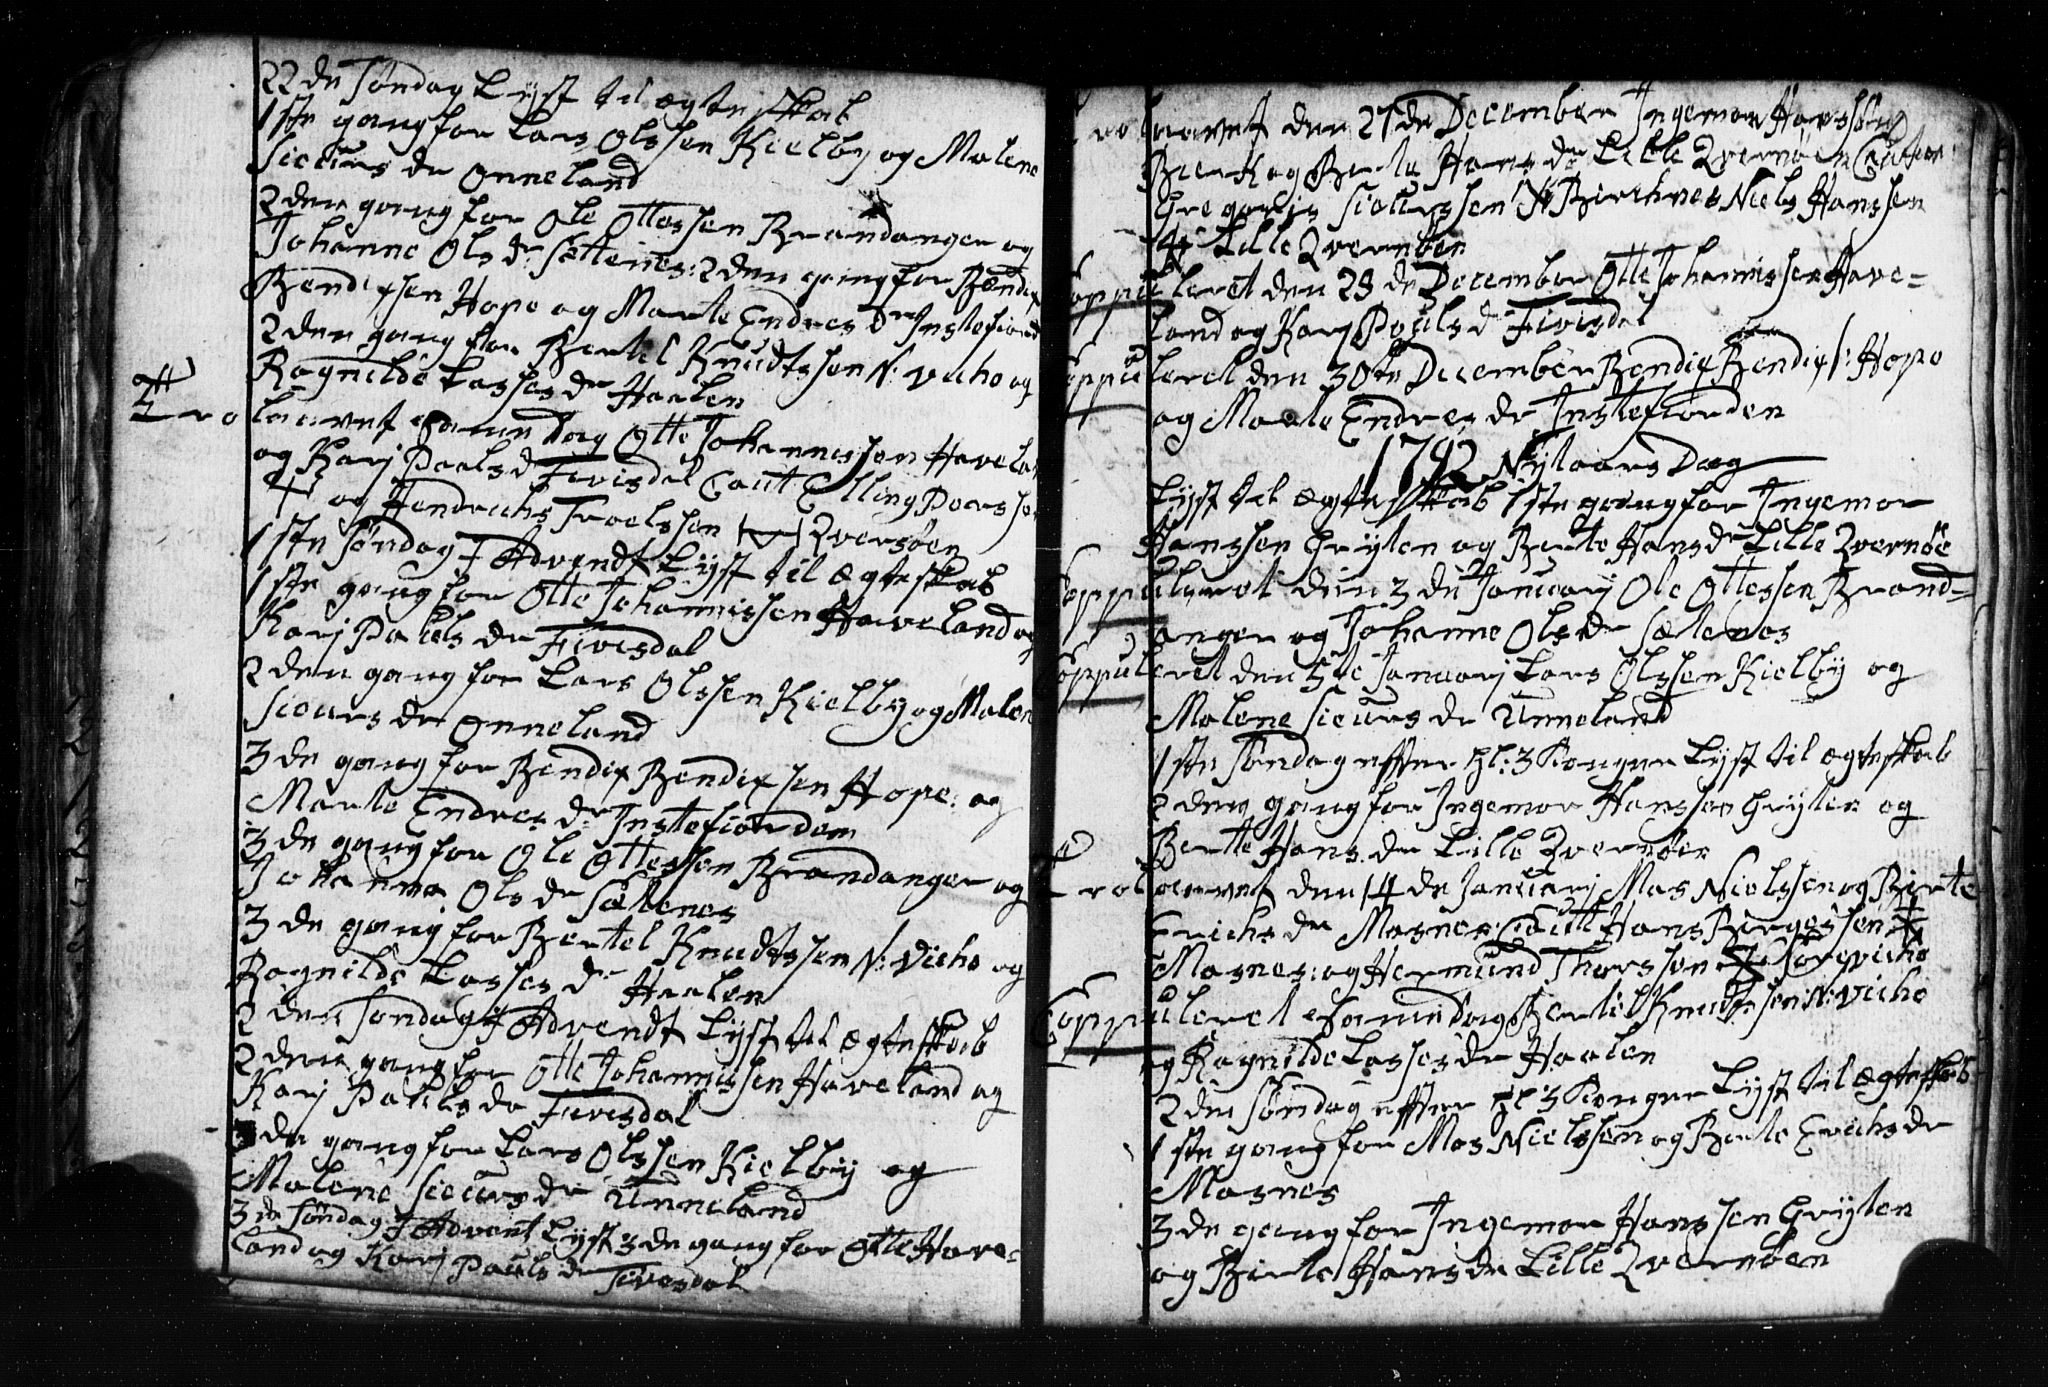 22 de Søndag Lyst til ægteskab
1ste gang for Lars Olssen Kielby og Malene
Sieurs dr Onneland
2den gang for Ole Ottessen Brandanger og
Johanne Ols dr Sættenes: 2den gang for Bendix
Bendixsen Hope og Marte Endres dr Instefiord
2den gang for Bertel Knudtssen N: Vicho og
Ragnilde Lasses dr Haalen
Trolaavet samme Dag Otte Johannissen Haveland
og Karj Paals d Fivisdal Caut Elling Peerssen
og Hendrich Troelssen Qversøen
1ste Søndag J Advendt Lyst til ægteskab
1ste gang for Otte Johannissen Haveland og
Karj Pauls dr Fivisdal
2den gang for Lars Olssen Kielby og Malen
Sieurs dr Onneland
3de gang for Bendix Bendixsen Hope: og
Marte Endres dr Instefiorden
3de gang for Ole Ottessen Brandanger og
Johanna Ols dr Sættenes
3de gang for Bertel Knudtssen N: Vicho og
Ragnilde Lasses dr Haalen
2den Søndag J Advendt Lyst til ægteskab
2den gang for Otte Johannissen Haveland og
Karj Pauls dr Fivisdal
3de gang for Lars Olssen Kielby og
Malene Sieurs dr Unneland
3de Søndag J Advent Lyst 3de gang for Otte Have=
land og Karj Pauls dr Fivisdal
Trolaavet den 27de December Ingemor Hanssøn
Birk og Berte Hans dr Lille Qvernøen Caution
Gregorius Sieurssen N Birchnes Niels Hanssen
Lille Qvernøen
Coppuleret den 28de December Otte Johannissen Have=
land og Karj Pouls d Fivisdal
Coppuleret den 30te December Bendix Bendix /: Hope
og Marte Endres dr Instefiorden
1792 Nytaars Dag
Lyst til ægteskab 1ste gang for Ingemor
Hanssen Gryten og Berte Hans dr Lille Qvernøe
Coppuleret den 3de Januarj Ole Ottessen Brand=
anger og Johanne Ols dr Sætenes
Coppuleret den 5te Januarj Lars Olssen Kielby og
Malene Sieurs dr Unneland
1ste Søndag effter hl: 3 Konger Lyst til ægteskab
2den gang for Ingemor Hanssen Gryten og
Berte Hans dr Lille Qvernøen
Trolaavet den 14de Januarj Mas Nielssen og Birte
Erichs dr Masnes Cautt Hans Børgessen
Masnes: og Hermund Thorsson Norevicho
Coppuleret samme dag Bertel Knudtssen N: Vicho
og Ragnilde Lasses dr Haalen
2den Søndag effter hl: 3 Konger Lyst til ægteskab
1ste gang for Mas Nielssen og Berte Erichs dr
Masnes
3de gang for Ingemor Hanssen Gryten
og Birte Hans dr Lille Qvernøen